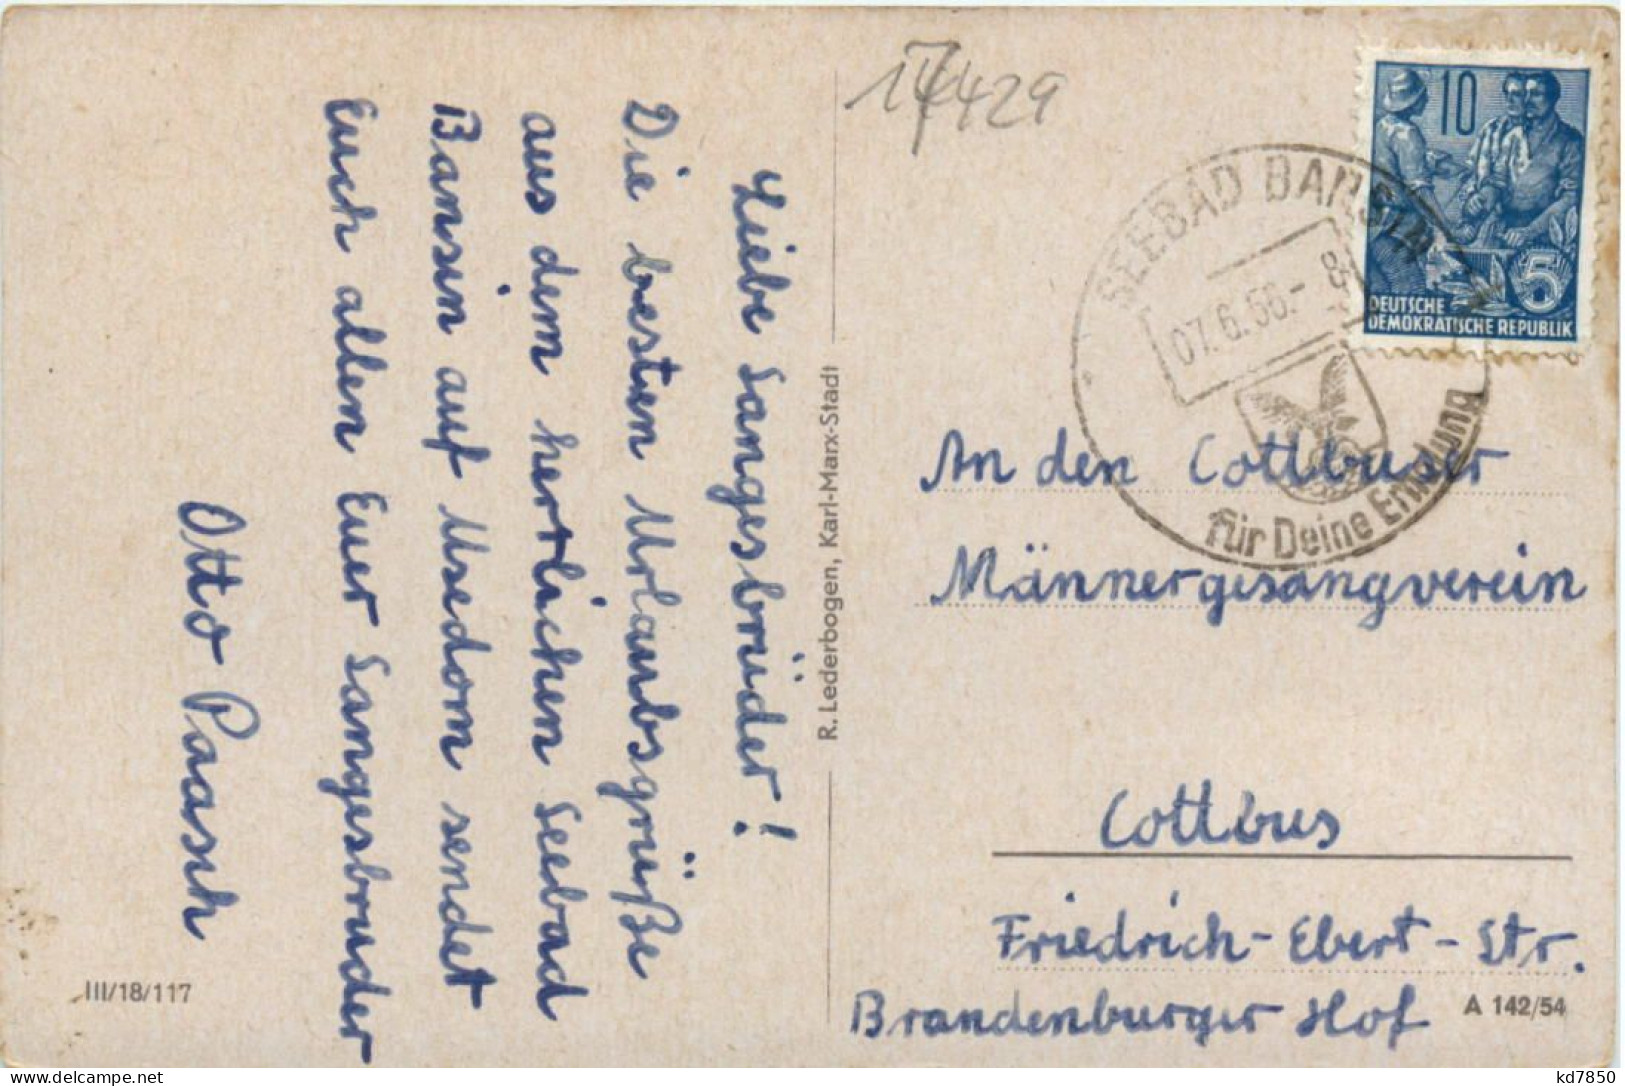 Liebe Sangesbrüder!
Die besten Urlaubsgrüße
aus dem herrlichen Seebad
Bansin auf Usedom sendet
Euch allen Euer Sangesbruder
Otto Paasch
III/18/117
R. Lederbogen, Karl-Marx-Stadt
429
SEEBAD BANSIN
07.6.56.- 8
für Deine Erholung
10
5
DEUTSCHE
DEMOKRATISCHE REPUBLIK
An den Cottbuser
Männergesangverein
Cottbus
Friedrich-Ebert-Str.
Brandenburger Hof
A 142/54
kd7850